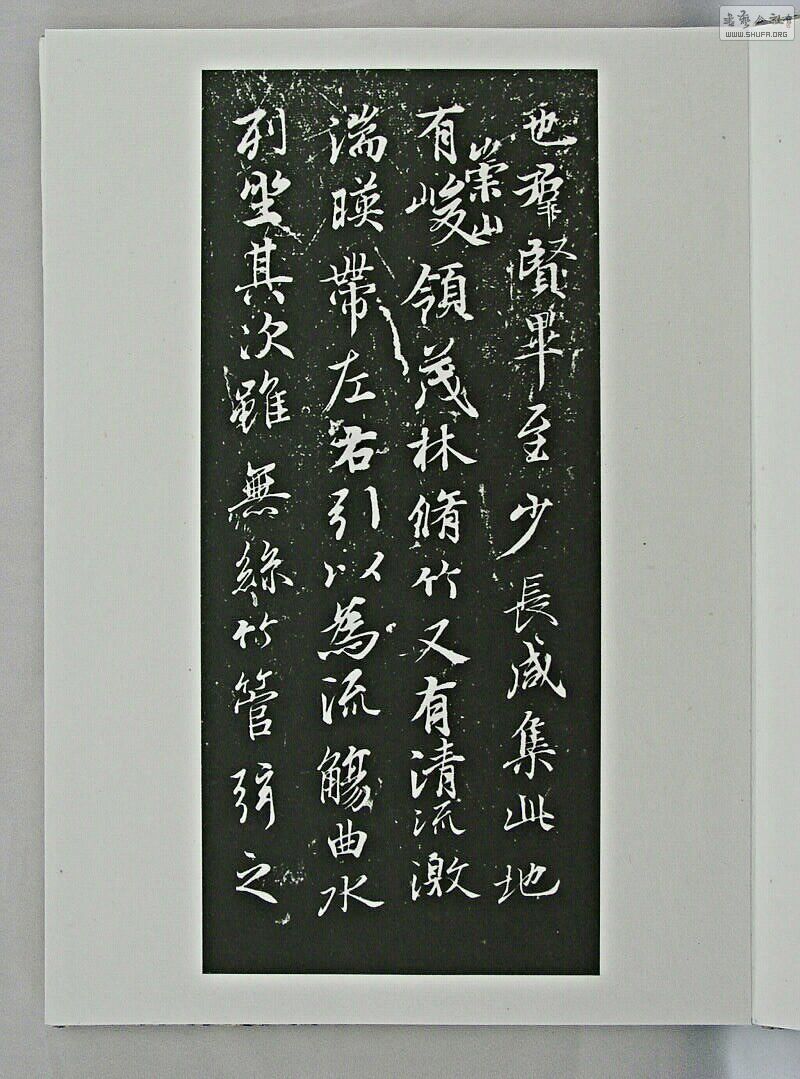 也羣賢畢至少長咸集此地
有崇山峻領茂林脩竹又有清流激
湍暎帶左右引以為流觴曲水
列坐其次雖無絲竹管弦之
书艺公社
WWW.SHUFA.ORG